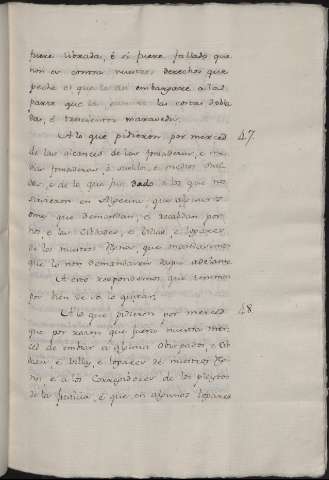 fuere librada, é si fuere fallado que
non es contra nuestros derechos que
peche el que la assi embargare a la
parte que la las costas dobla
das, é trecientos maravedis.
A lo que pidieron por merced 47
de los alcances de las fonsaderas, e me
dias fonsaderas, é sueldos, é medios suel
dos, e de lo que fue dado a los que nos
sirvieron en Algecira que algunos
omes que demandan, é recabdan por
nos, e las Cibdades, e Villas, e Logares
de los nuestros Regnos, que mandasemos
que lo non demandasen daqui adelante
A esto respondemos que tenemos
por bien de lo quitar.
A lo que pidieron por merced 48
que por razon que fuera nuestra mer
ced de embiar a algunos Obispados, e Cib
dades, é Villas, e Logares de nuestros Reg
nos e a los Corregidores de los pleytos
de la justicia, é que en algunos Logares